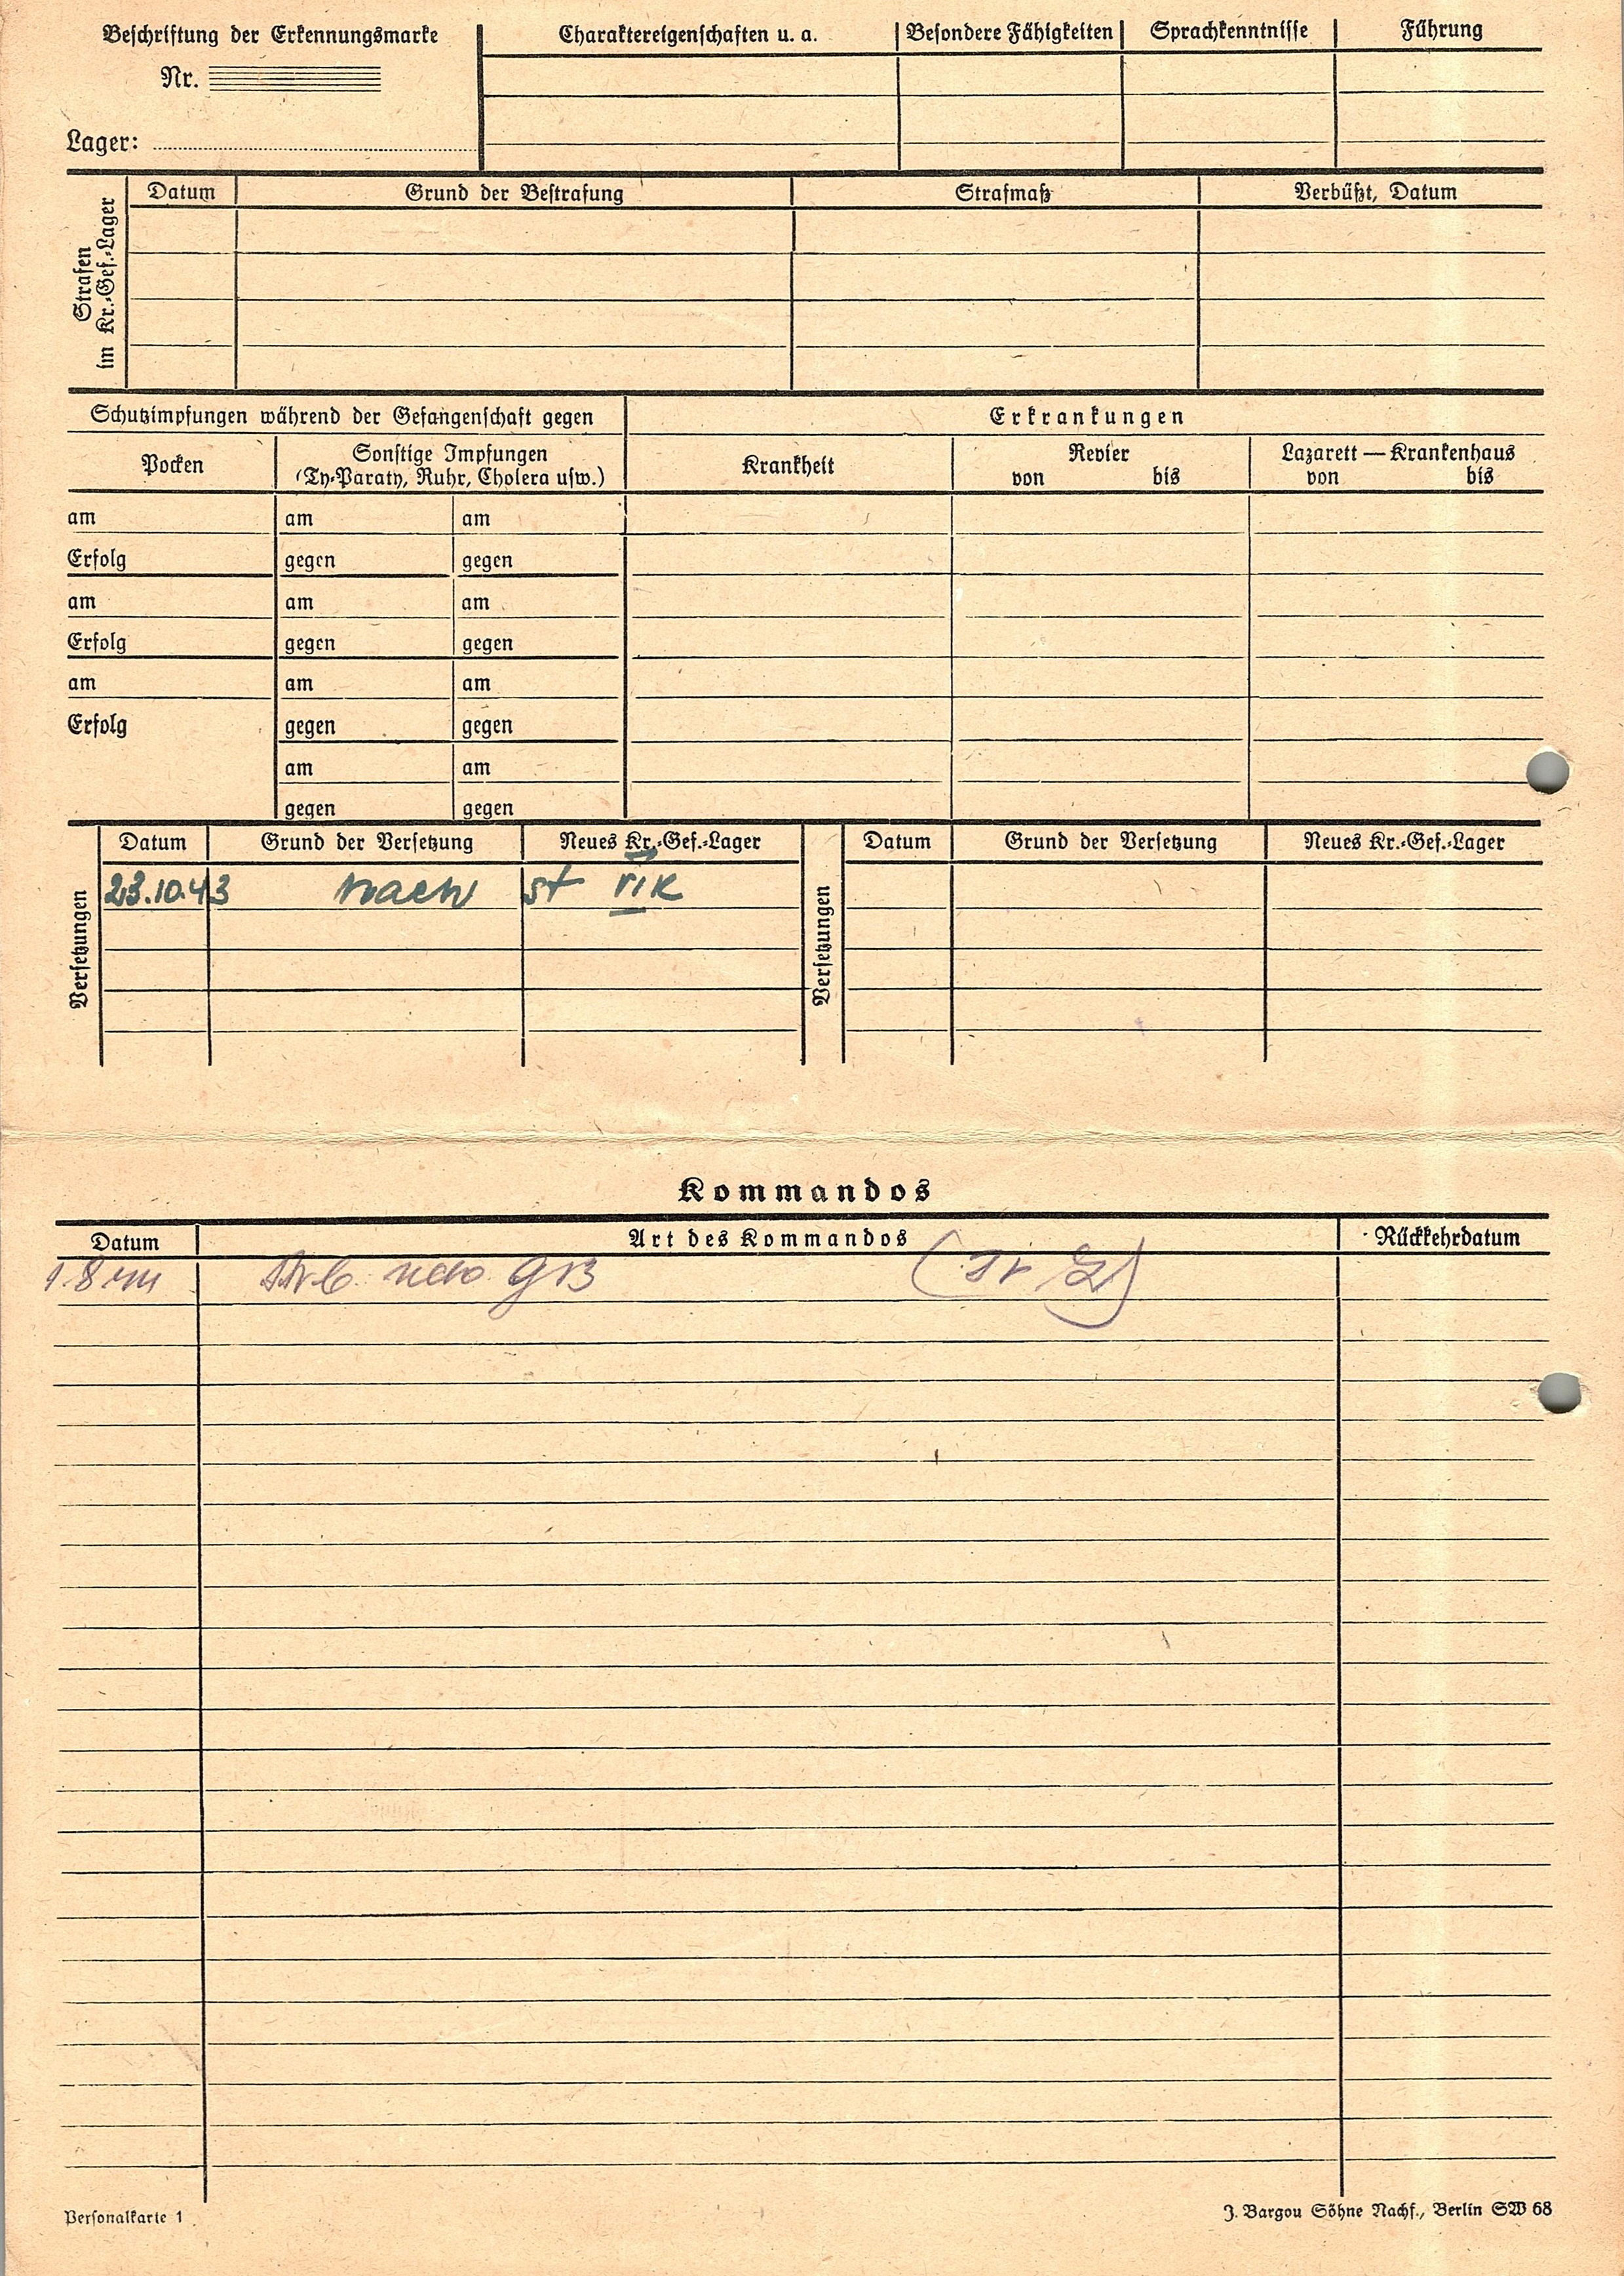 Beschriftung der Erkennungsmarke
Nr.
Lager:
Charaktereigenschaften u. a. Besondere Fähigkeiten Sprachkenntnisse Führung
Strafen
im Kr.-Gef.-Lager
Datum Grund der Bestrafung Strafmaß Verbüßt, Datum
Schutzimpfungen während der Gefangenschaft gegen Erkrankungen
Pocken
Sonstige Impfungen
(Ty-Paraty, Ruhr, Cholera usw.)
Krankheit
Revier
von bis
Lazarett — Krankenhaus
von bis
am am am
Erfolg gegen gegen
am am am
Erfolg gegen gegen
am am am
Erfolg gegen gegen
am am
gegen gegen
Versetzungen
Datum Grund der Versetzung Neues Kr.-Gef.-Lager
23.10.43 nach st VI K
Versetzungen
Datum Grund der Versetzung Neues Kr.-Gef.-Lager
Kommandos
Datum Art des Kommandos Rückkehrdatum
Personalkarte 1
J. Bargou Söhne Nachf., Berlin SW 68